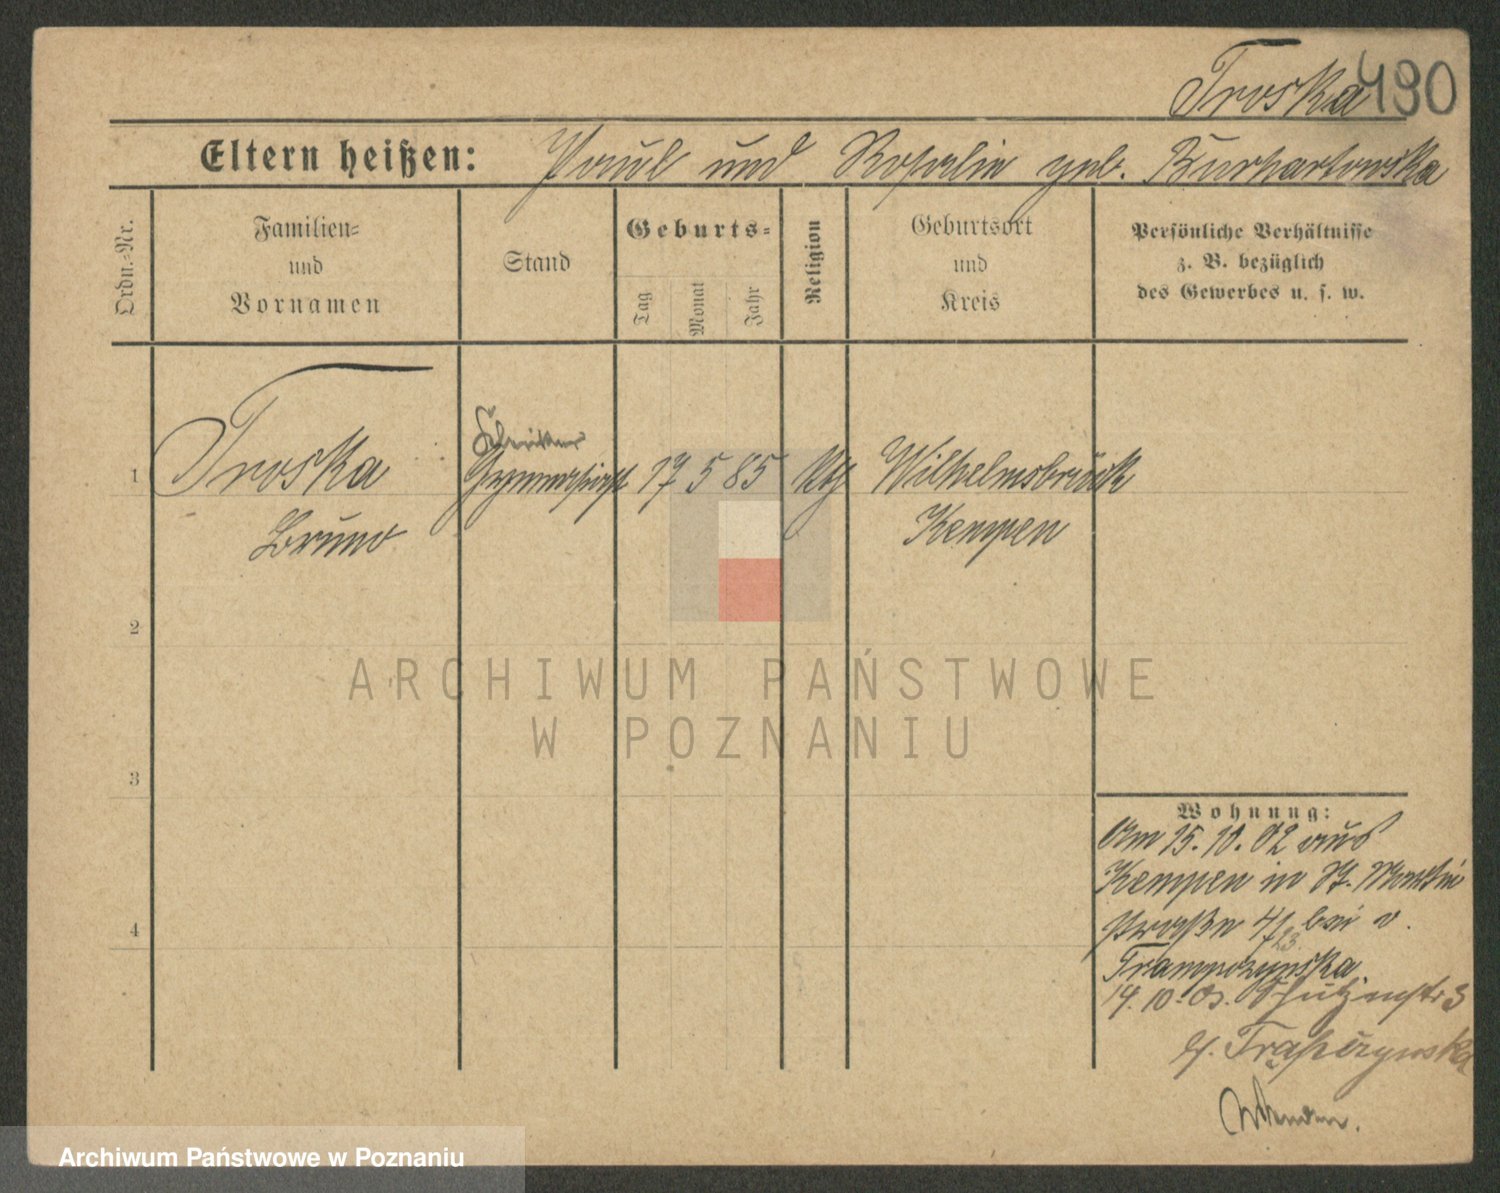 Troska 490
Eltern heißen: Paul und Rosalie geb. Burhartowska
Ordn.-Nr.
Familien-
und
Vornamen
Stand
Geburts-
Tag
Monat
Jahr
Religion
Geburtsort
und
Kreis
Persönliche Verhältnisse
z. B. bezüglich
des Gewerbes u. s. w.
1 Troska Gymnasiast 17 5 85 kth Wilhelmsbrück
Bruno Kempen
2
3
4
Wohnung:
Am 15. 10. 02 aus
Kempen in St. Martin
straße 4/23 bei v.
Trampczynska.
14. 10. 03. Schützenstr 3
b. Trąpczynska
ARCHIWUM PAŃSTWOWE
W POZNANIU
Archiwum Państwowe w Poznaniu